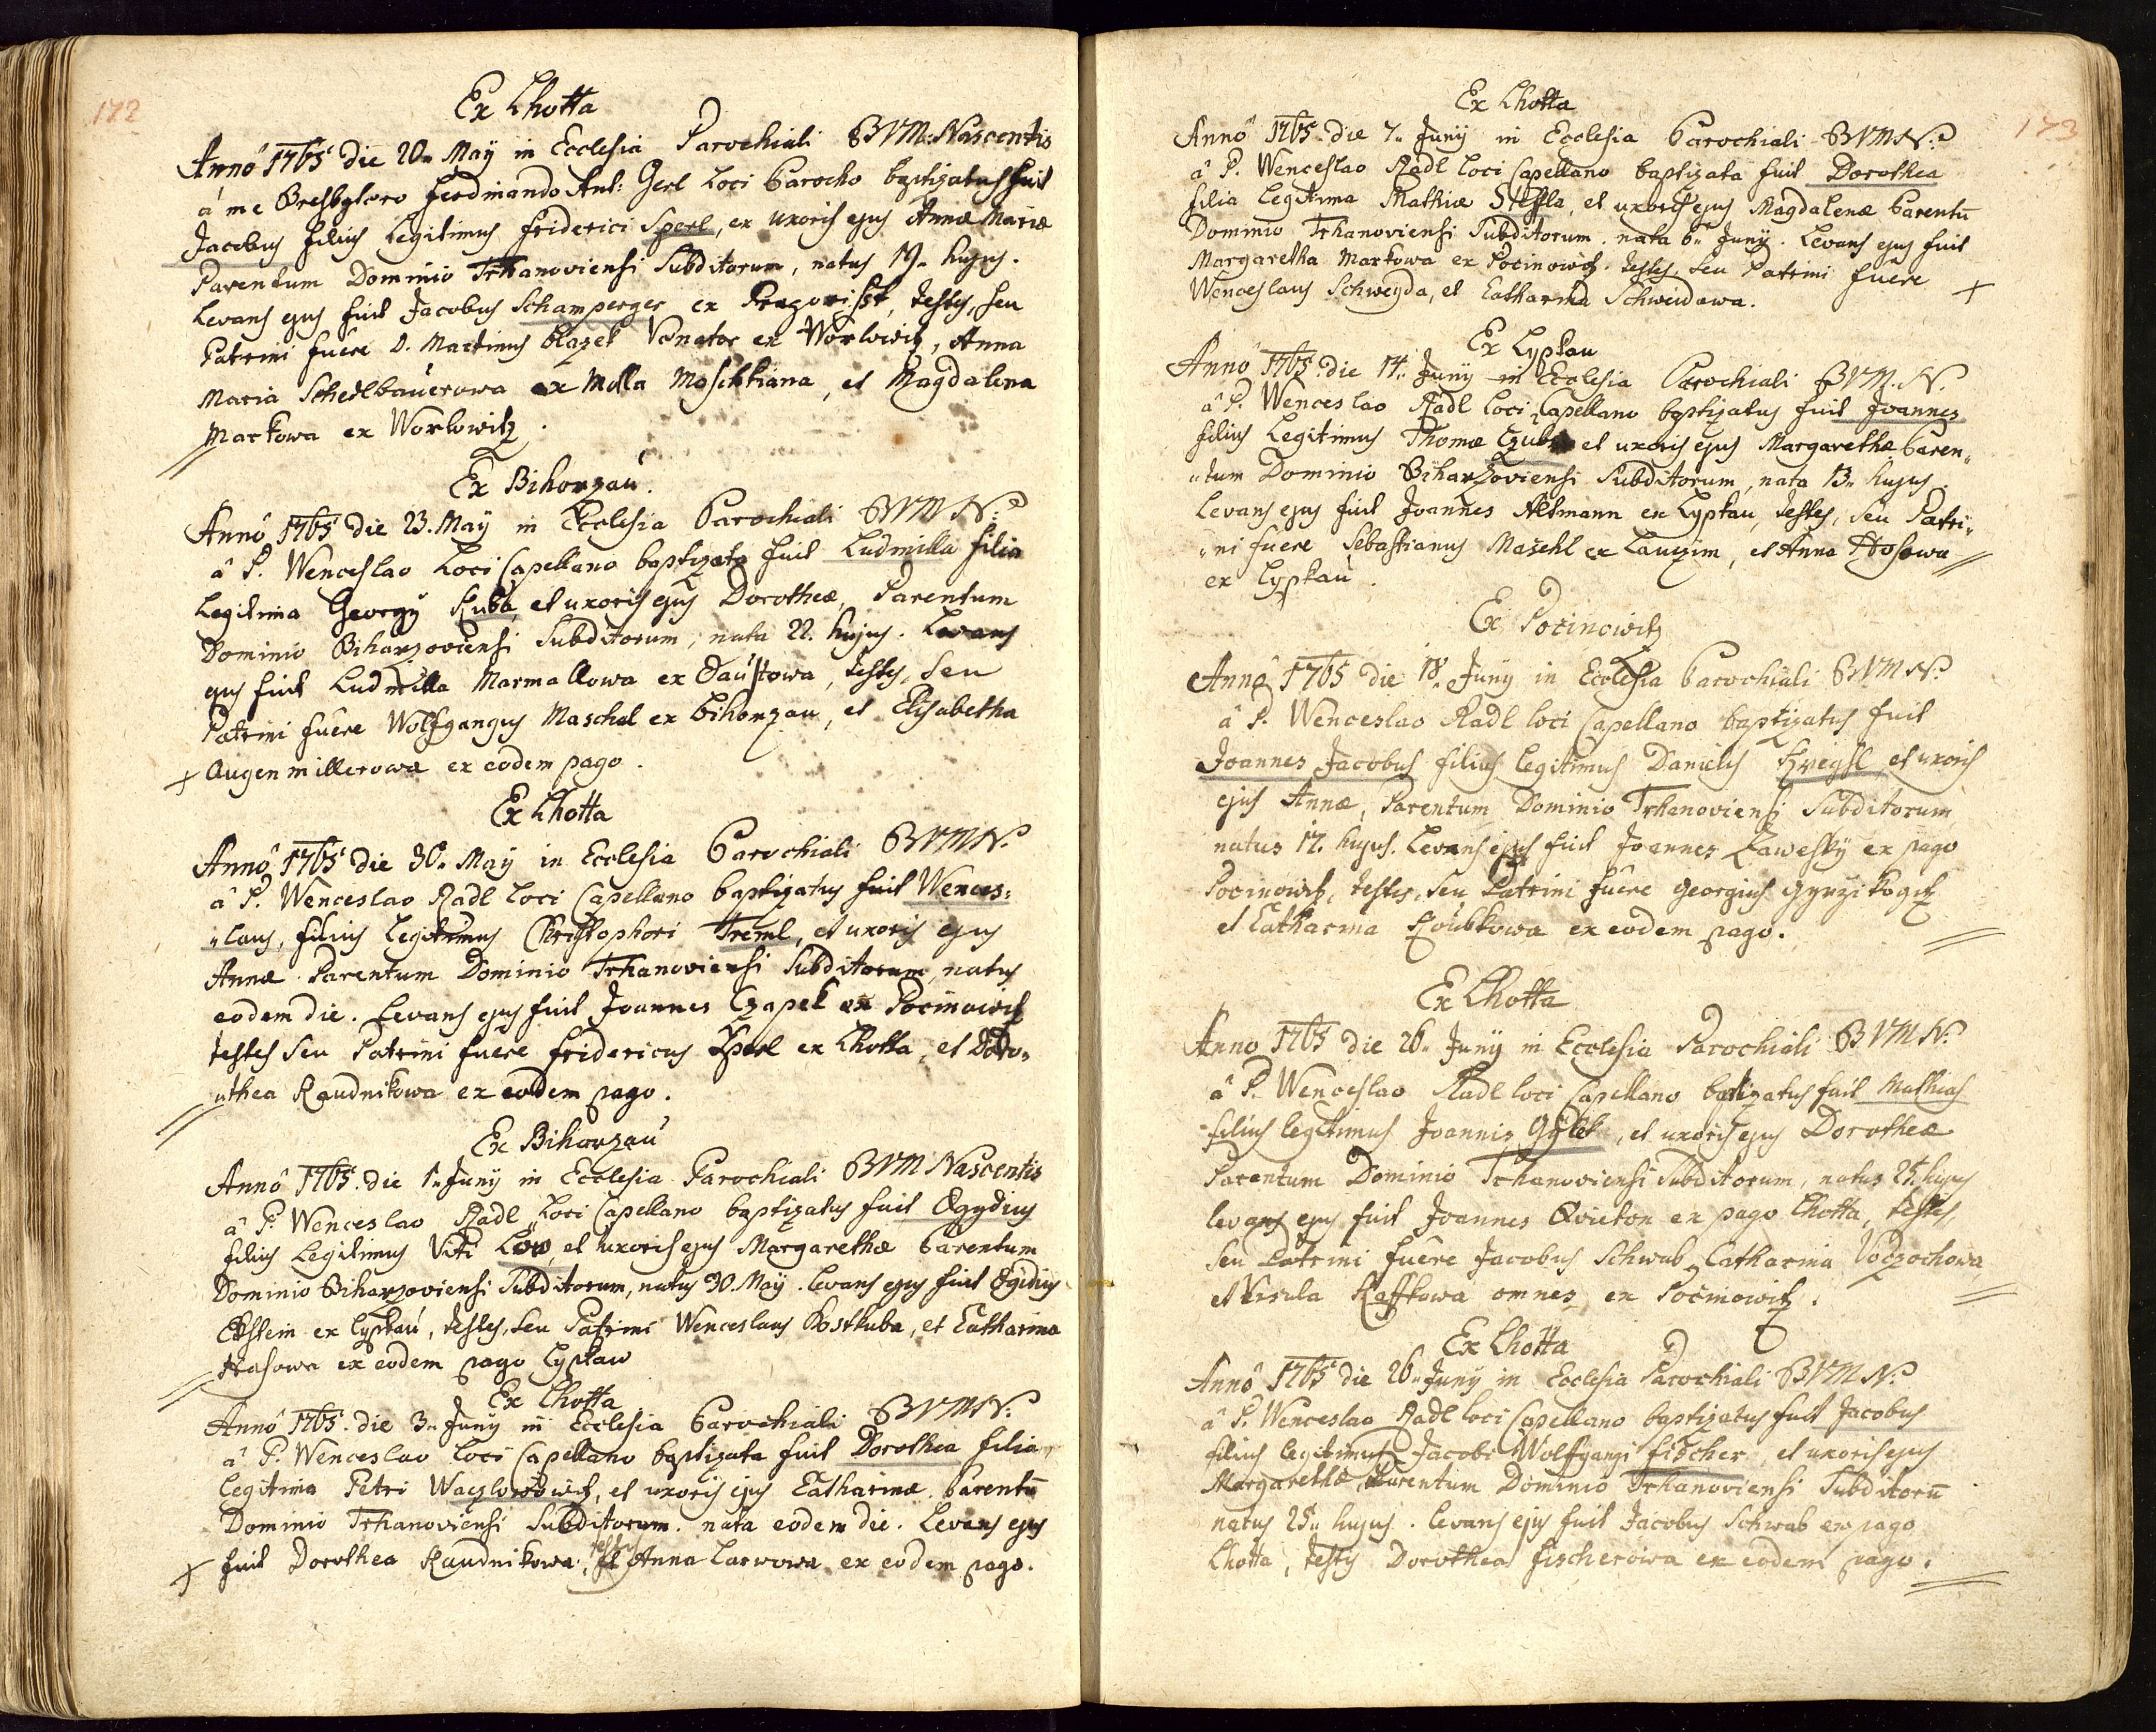 172
Ex Lhotta
Anno 1765 die 20. Maÿ in Ecclesia Parochiali BVM: Nascentis
à me Presbytero Ferdinando Ant: Gerl Loci Parocho baptizatus fuit
Jacobus filius Legitimus Friderici Sperl, ex uxoris ejus Annæ Mariæ
Parentum Dominio Trhanoviensi Subditorum, natus 19. hujus.
Levans ejus fuit Jacobus Schamperger ex, testes, seu
Patrini fuere D. Martinus Blazek Venator ex Worlowitz, Anna
Maria Schedlbauerowa ex Molla Moschkiana, et Magdalena
Markowa ex Worlowitz.
Ex Bihorzau.
Anno 1765 die 23. Maÿ in Ecclesia Parochiali BVMN.
à P. Wenceslao Loci Capellano baptizata fuit Ludmilla filia
Legitima Georgÿ Kuba, et uxoris ejus Dorotheæ, Parentum
Dominio Biharzoviensi Subditorum, nata 22. hujus. Levans
ejus fuit Ludmilla Marmallowa ex, testes, seu
Patrini fuere Wolfgangus Maschel ex Bihorzau, et Elisabetha
Augenmillerowa ex eodem pago.
Ex Lhotta
Anno 1765 die 30. Maÿ in Ecclesia Parochiali BVMN.
à P. Wenceslao Radl Loci Capellano baptizatus fuit Wences:
„laus, filius Legitimus Christophori Treml, et uxoris ejus
Annæ Parentum Dominio Trhanoviensi Subditorum, natus
eodem die. Levans ejus fuit Joannes Czapek ex Pocinowitz
testes seu Patrini fuere Fridericus Sperl ex Lhotta, et Doro„
„thea Raudnikowa ex eodem pago.
Ex Bihorzau
Anno 1765 die 1. Junÿ in Ecclesia Parochiali BVM Nascentis
à P. Wenceslao Radl Loci Capellano baptizatus fuit Ægydius
filius Legitimus Viti Low, et uxoris ejus Margarethæ Parentum
Dominio Biharzoviensi Subditorum, natus 30. Maÿ. Levans ejus fuit Egidius
Ekstein ex Lyptau, testes, seu Patrini Wenceslaus Kostkuba, et Catharina
Hasowa ex eodem pago Lyptaw
Ex Lhotta
Anno 1765. die 3. Junÿ in Ecclesia Parochiali BVMN.
à P. Wenceslao Loci Capellano baptizata fuit Dorothea filia
Legitima Petri, et uxoris ejus Catharinæ Parentū
Dominio Trhanoviensi Subditorum. nata eodem die. Levans ejus
fuit Dorothea Raudnikowa, testes et Anna Larwowa ex eodem pago.
173
Ex Lhotta
Anno 1765 die 7. Junÿ in Ecclesia Parochiali BVMN.
à P. Wenceslao Radl Loci Capellano baptizata fuit Dorothea
filia Legitima Mathiæ Steffla, et uxoris ejus Magdalenæ Parentū
Dominio Trhanoviensi Subditorum. nata 6. Junÿ. Levans ejus fuit
Margaretha Markowa ex Pocinowitz. testes, seu Patrini fuere
Wenceslaus Schweyda, et Catharina Schweidawa.
Ex Lyptau
Anno 1765. die 14. Junÿ in Ecclesia Parochiali BVM. N.
à P. Wenceslao Radl Loci Capellano baptizatus fuit Joannes
filius Legitimus Thomæ et uxoris ejus Margarethæ Paren„
„tum Dominio Biharzoviensi Subditorum, nata 13. hujus.
Levans ejus fuit Joannes Altmann ex Lyptau, testes, seu Patri„
„ni fuere Sebastianus Mašehl ex Lauzim, et Anna Hosowa
ex Lyptau.
Ex Pocinowitz
Anno 1765 die 18. Junÿ in Ecclesia Parochiali BVMN.
à P. Wenceslao Radl loci Capellano baptizatus fuit
Joannes Jacobus filius legitimus Danielis Kreysl, et uxoris
ejus Annæ, Parentum Dominio Trhanoviensi Subditorum
natus 17. hujus. Levans ejus fuit Joannes Zaweskÿ ex pago
Pocinowitz, testes, seu Patrini fuere Georgius
et Catharina Roubkowa ex eodem pago.
Ex Lhotta
Anno 1765 die 26. Junÿ in Ecclesia Parochiali BVMN.
à P. Wenceslao Radl loci Capellano baptizatus fuit Mathias
filius legitimus Joannis Gÿlek, et uxoris ejus Dorotheæ
Parentum Dominio Trhanoviensi Subditorum, natus 25. hujus
levans ejus fuit Joannes Qvieton ex pago Lhotta, testes,
seu Patrini fuere Jacobus Schwab, Catharina Voczochowa,
et Ursula Kaffkowa omnes ex Pocinowitz.
Ex Lhotta
Anno 1765 die 26. Junÿ in Ecclesia Parochiali BVMN.
à P. Wenceslao Radl loci Capellano baptizatus fuit Jacobus
filius legitimus Jacobi Wolfgangi Fischer, et uxoris ejus
Margarethæ, Parentum Dominio Trhanoviensi Subditorū
natus 25. hujus. levans ejus fuit Jacobus Schwab ex pago
Lhotta, testis Dorothea Fischerowa ex eodem pago.